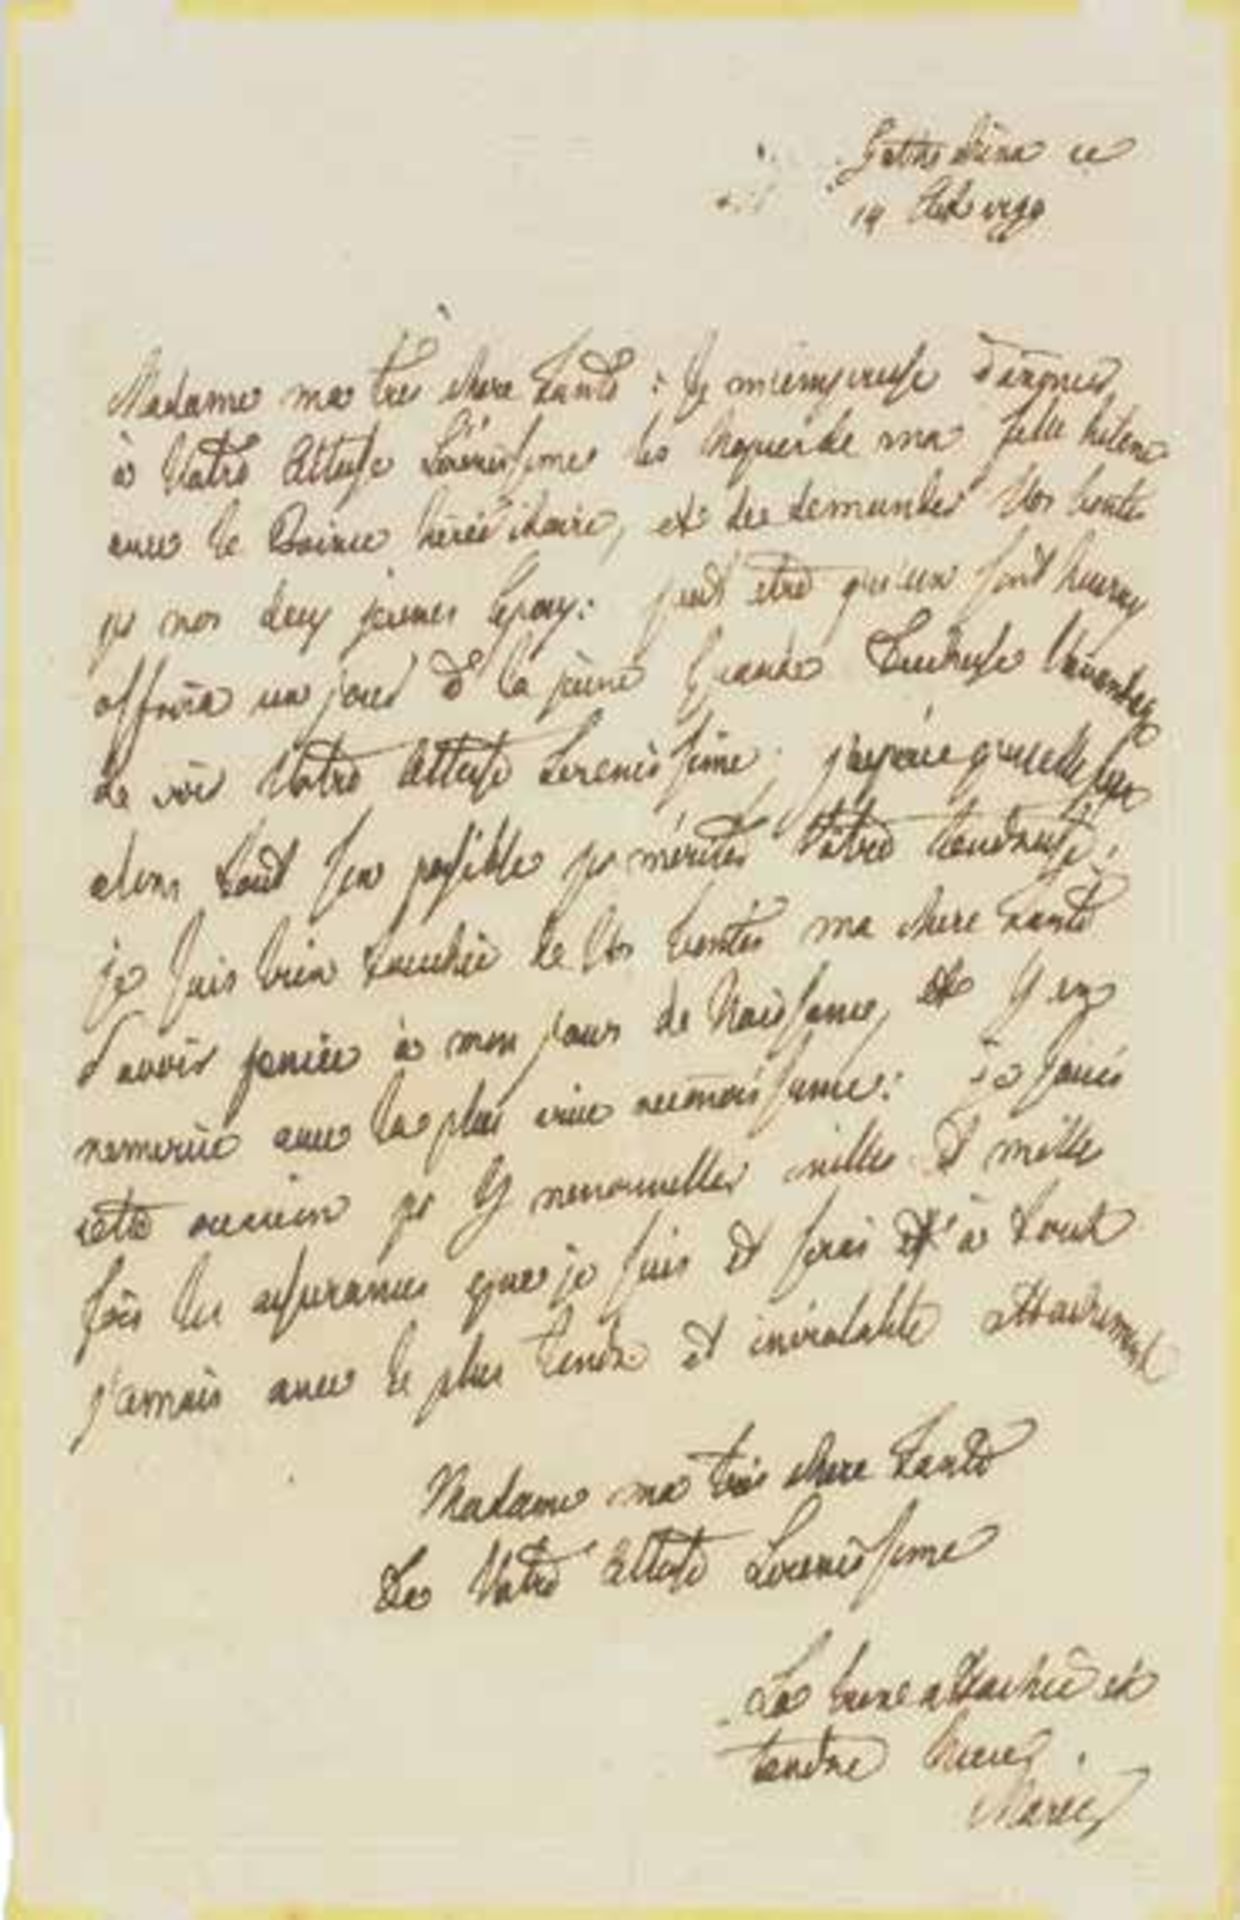 Gatschina ce
14 Oct 1799
Madame ma très chere Tante : Je m'empresse d'anoncer
à Votre Altesse Sérénissime le Mariage de ma fille helene
avec le Prince héréditaire, et de demander Vos bontés
pr nos deux jeunes Epoux: peut etre qu'un sort heureux
offrira un jour à la jeune Grande Duchesse
de voir Votre Altesse Serenissime; j'espère qu'elle fera
alors tout son possible pr mériter Vôtre tendresse;
je suis bien touchée de Vos bontés ma chere Tante
d'avoir pensée à mon jour de Naissance, et Y en
remercie avec la plus vive reconoissance: Je saisis
cette occasion pr Y renouveller milles et mille
fois les assurances que je suis et serai et à tout
jamais avec le plus tendre et inviolable attachement
Madame ma très chere Tante
De Votre Altesse Serenissime
La bien attachée et
tendre Niece
Marie